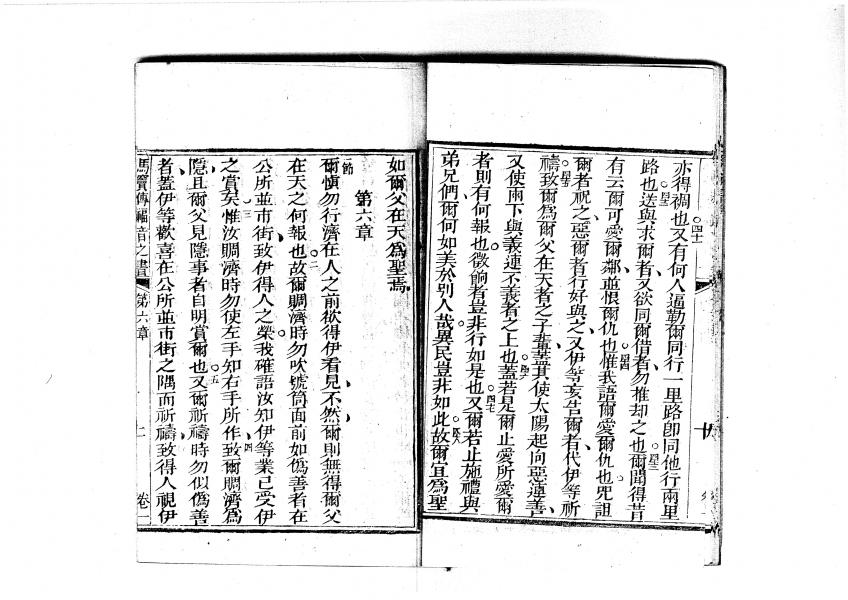 亦得裯也又有何人逼勒爾同行一里路卽同他行兩里
路也送與求爾者又欲同爾借者勿推却之也爾聞得昔
有云爾可愛爾鄰並恨爾仇也惟我語爾愛爾仇也咒詛
爾者祝之惡爾者行好與之又伊等妄告爾者代伊等祈
禱致爾爲爾父在天者之子輩蓋其使太陽起向惡連善
又使雨下與義連不義者之上也蓋若是爾止愛所愛爾
者則有何報也徵餉者豈非行如是也又爾若止施禮與
弟兄們爾何如美於別人哉異民豈非如此故爾宜爲聖
如爾父在天爲聖焉
第六章
爾愼勿行濟在人之前欲得伊看見不然爾則無得爾父
在天之何報也故爾賙濟時勿吹號筒面前如僞善者在
公所並市街致伊得人之榮我確語汝知伊等業已受伊
之賞矣惟汝賙濟時勿使左手知右手所作致爾賙濟爲
隱且爾父見隱事者自明賞爾也又爾祈禱時勿似僞善
者蓋伊等歡喜在公所並市街之隅而祈禱致得人視伊
傳福音之書 第六章 上 卷一